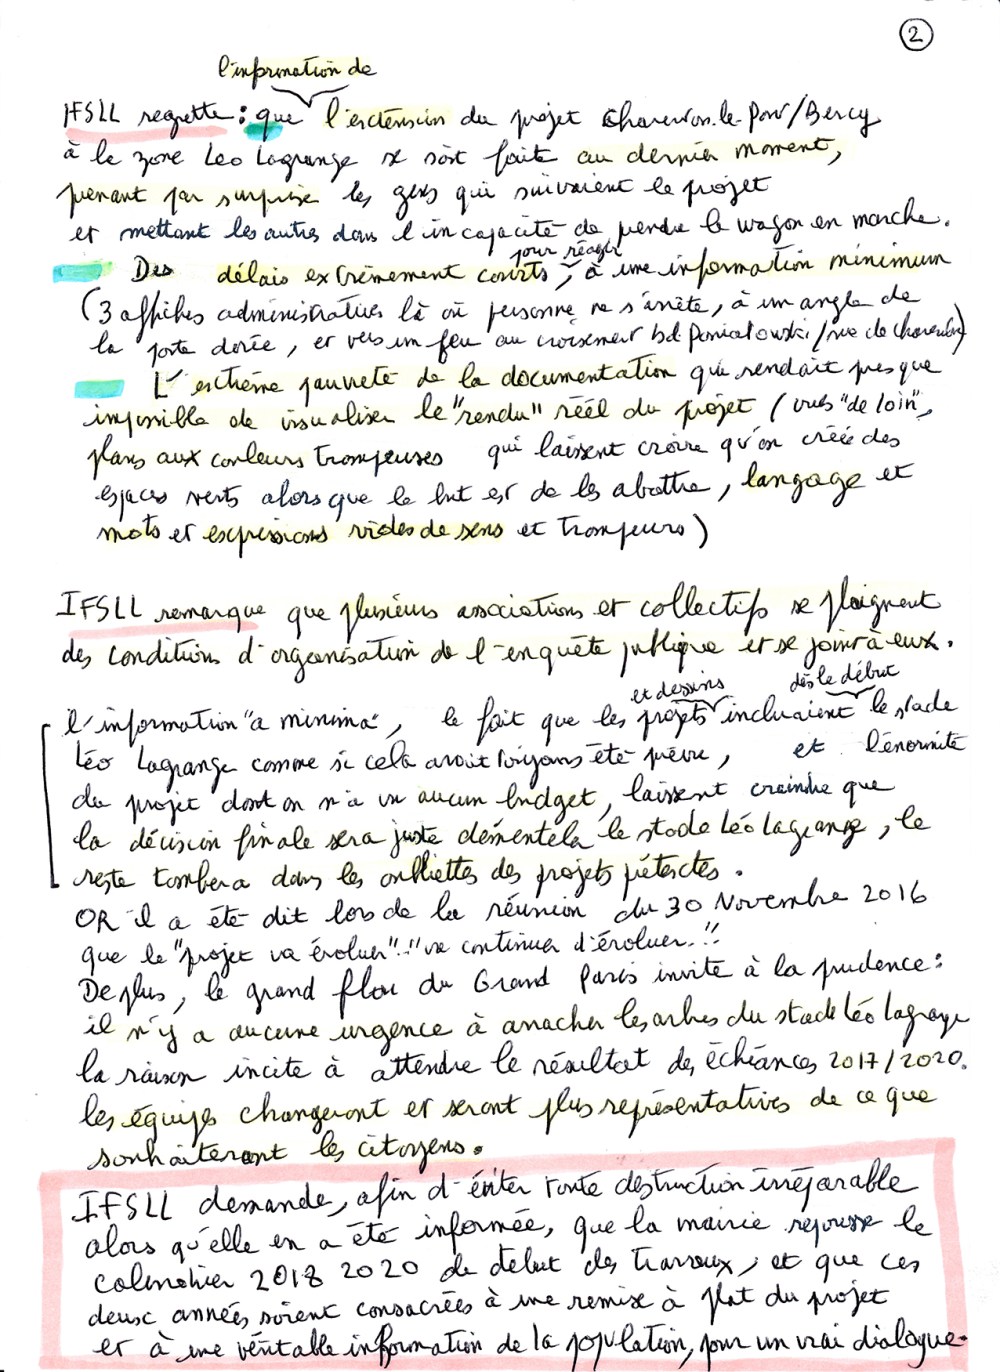 2
l'information de
IFSLL regrette : que l'extension du projet Charenton-le-Pont/Bercy
à la zone Léo Lagrange se soit faite au dernier moment,
prenant par surprise les gens qui suivaient le projet
et mettant les autres dans l'incapacité de prendre le wagon en marche.
pour réagir
Des délais extrêmement courts, à une information minimum
(3 affiches administratives là où personne ne s'arrête, à un angle de
la porte dorée, et vers un feu au croisement bd Poniatowski/rue de Charenton)
L'extrême pauvreté de la documentation qui rendait presque
impossible de visualiser le "rendu" réel du projet (vues "de loin",
plans aux couleurs trompeuses qui laissent croire qu'on créée des
espaces verts alors que le but est de les abattre, langage et
mots et expressions vides de sens et trompeurs)
IFSLL remarque que plusieurs associations et collectifs se plaignent
des conditions d'organisation de l'enquête publique et se joint à eux.
et dessins dès le début
l'information "a minima", le fait que les projets incluaient le stade
Léo Lagrange comme si cela avait toujours été prévu, et l'énormité
du projet dont on n'a vu aucun budget, laissent craindre que
la décision finale sera juste démentela le stade Léo Lagrange, le
reste tombera dans les oubliettes des projets
OR il a été dit lors de la réunion du 30 Novembre 2016
que le "projet va évoluer" "va continuer d'évoluer"!!
De plus, le grand flou du Grand Paris invite à la prudence :
il n'y a aucune urgence à arracher les arbres du stade Léo Lagrange
la raison incite à attendre le résultat des échéances 2017/2020.
les équipes changeront et seront plus représentatives de ce que
souhaiteront les citoyens.
IFSLL demande, afin d'éviter toute destruction irréparable
alors qu'elle en a été informée, que la mairie repousse le
calendrier 2018 2020 de début des travaux, et que ces
deux années soient consacrées à une remise à plat du projet
et à une véritable information de la population, pour un vrai dialogue.